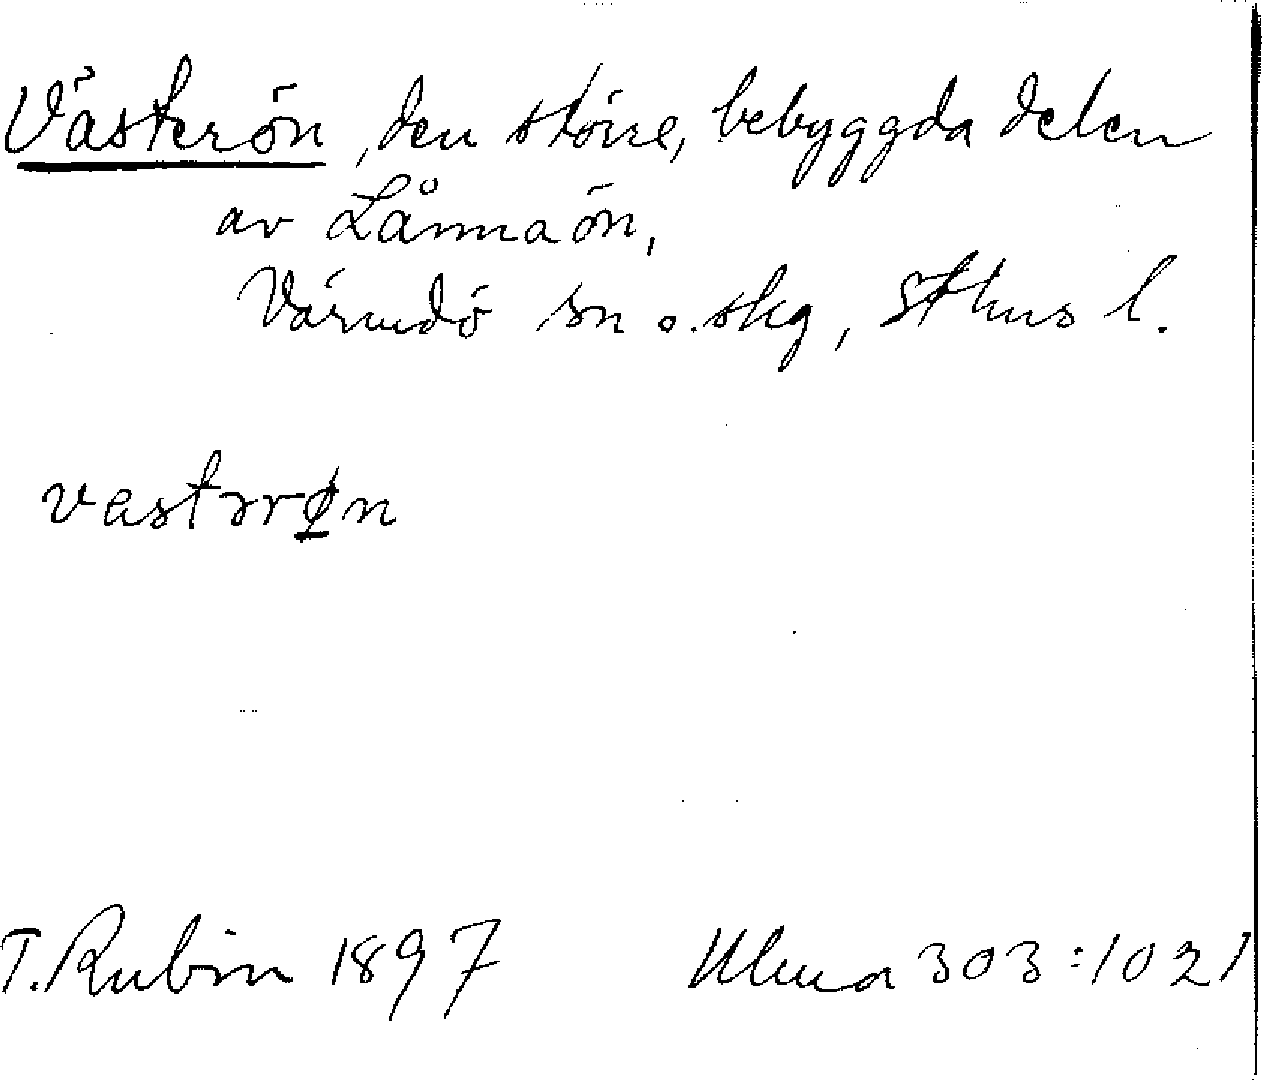 Västerön, den större, bebyggda delen
av Lånnaön,
Värmdö sn o. skg, Sthms l.
vastərøn
T. Rubin 1897 Ulma 303:1021